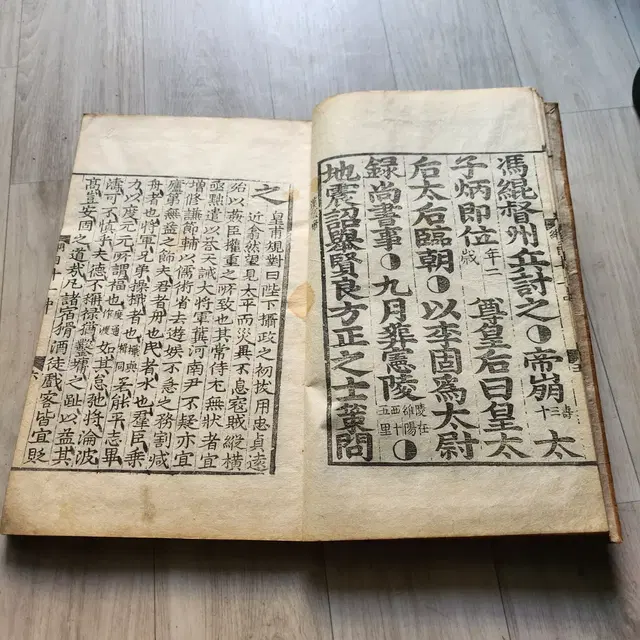 馮緄督州兵討之帝崩壽三十太
子炳即位年二歲尊皇后曰皇太
后太后臨朝以李固爲太尉
錄尚書事九月葬憲陵陵在雒陽西十五里
地震詔舉賢良方正之士策問
之
皇甫規對曰陛下攝政之初拔用忠貞遠
近翕然望見太平而災異不息寇賊縱橫
殆以姦臣權重之所致也其常侍尤無狀者宜
亟黜遣以答天誡大將軍冀河南尹不疑亦宜
增修謙節輔以儒術省去遊娛不急之務割減
廬第無益之飾夫君者舟也民者水也羣臣乘
舟者也將軍兄弟操檝者也檝與楫同若能平志畢
力以度元元所謂福也如其怠弛將淪波
濤可不慎乎夫德不稱祿猶鑿墉之趾以益其
高豈安固之道哉凡諸宿猾酒徒戲客皆宜貶